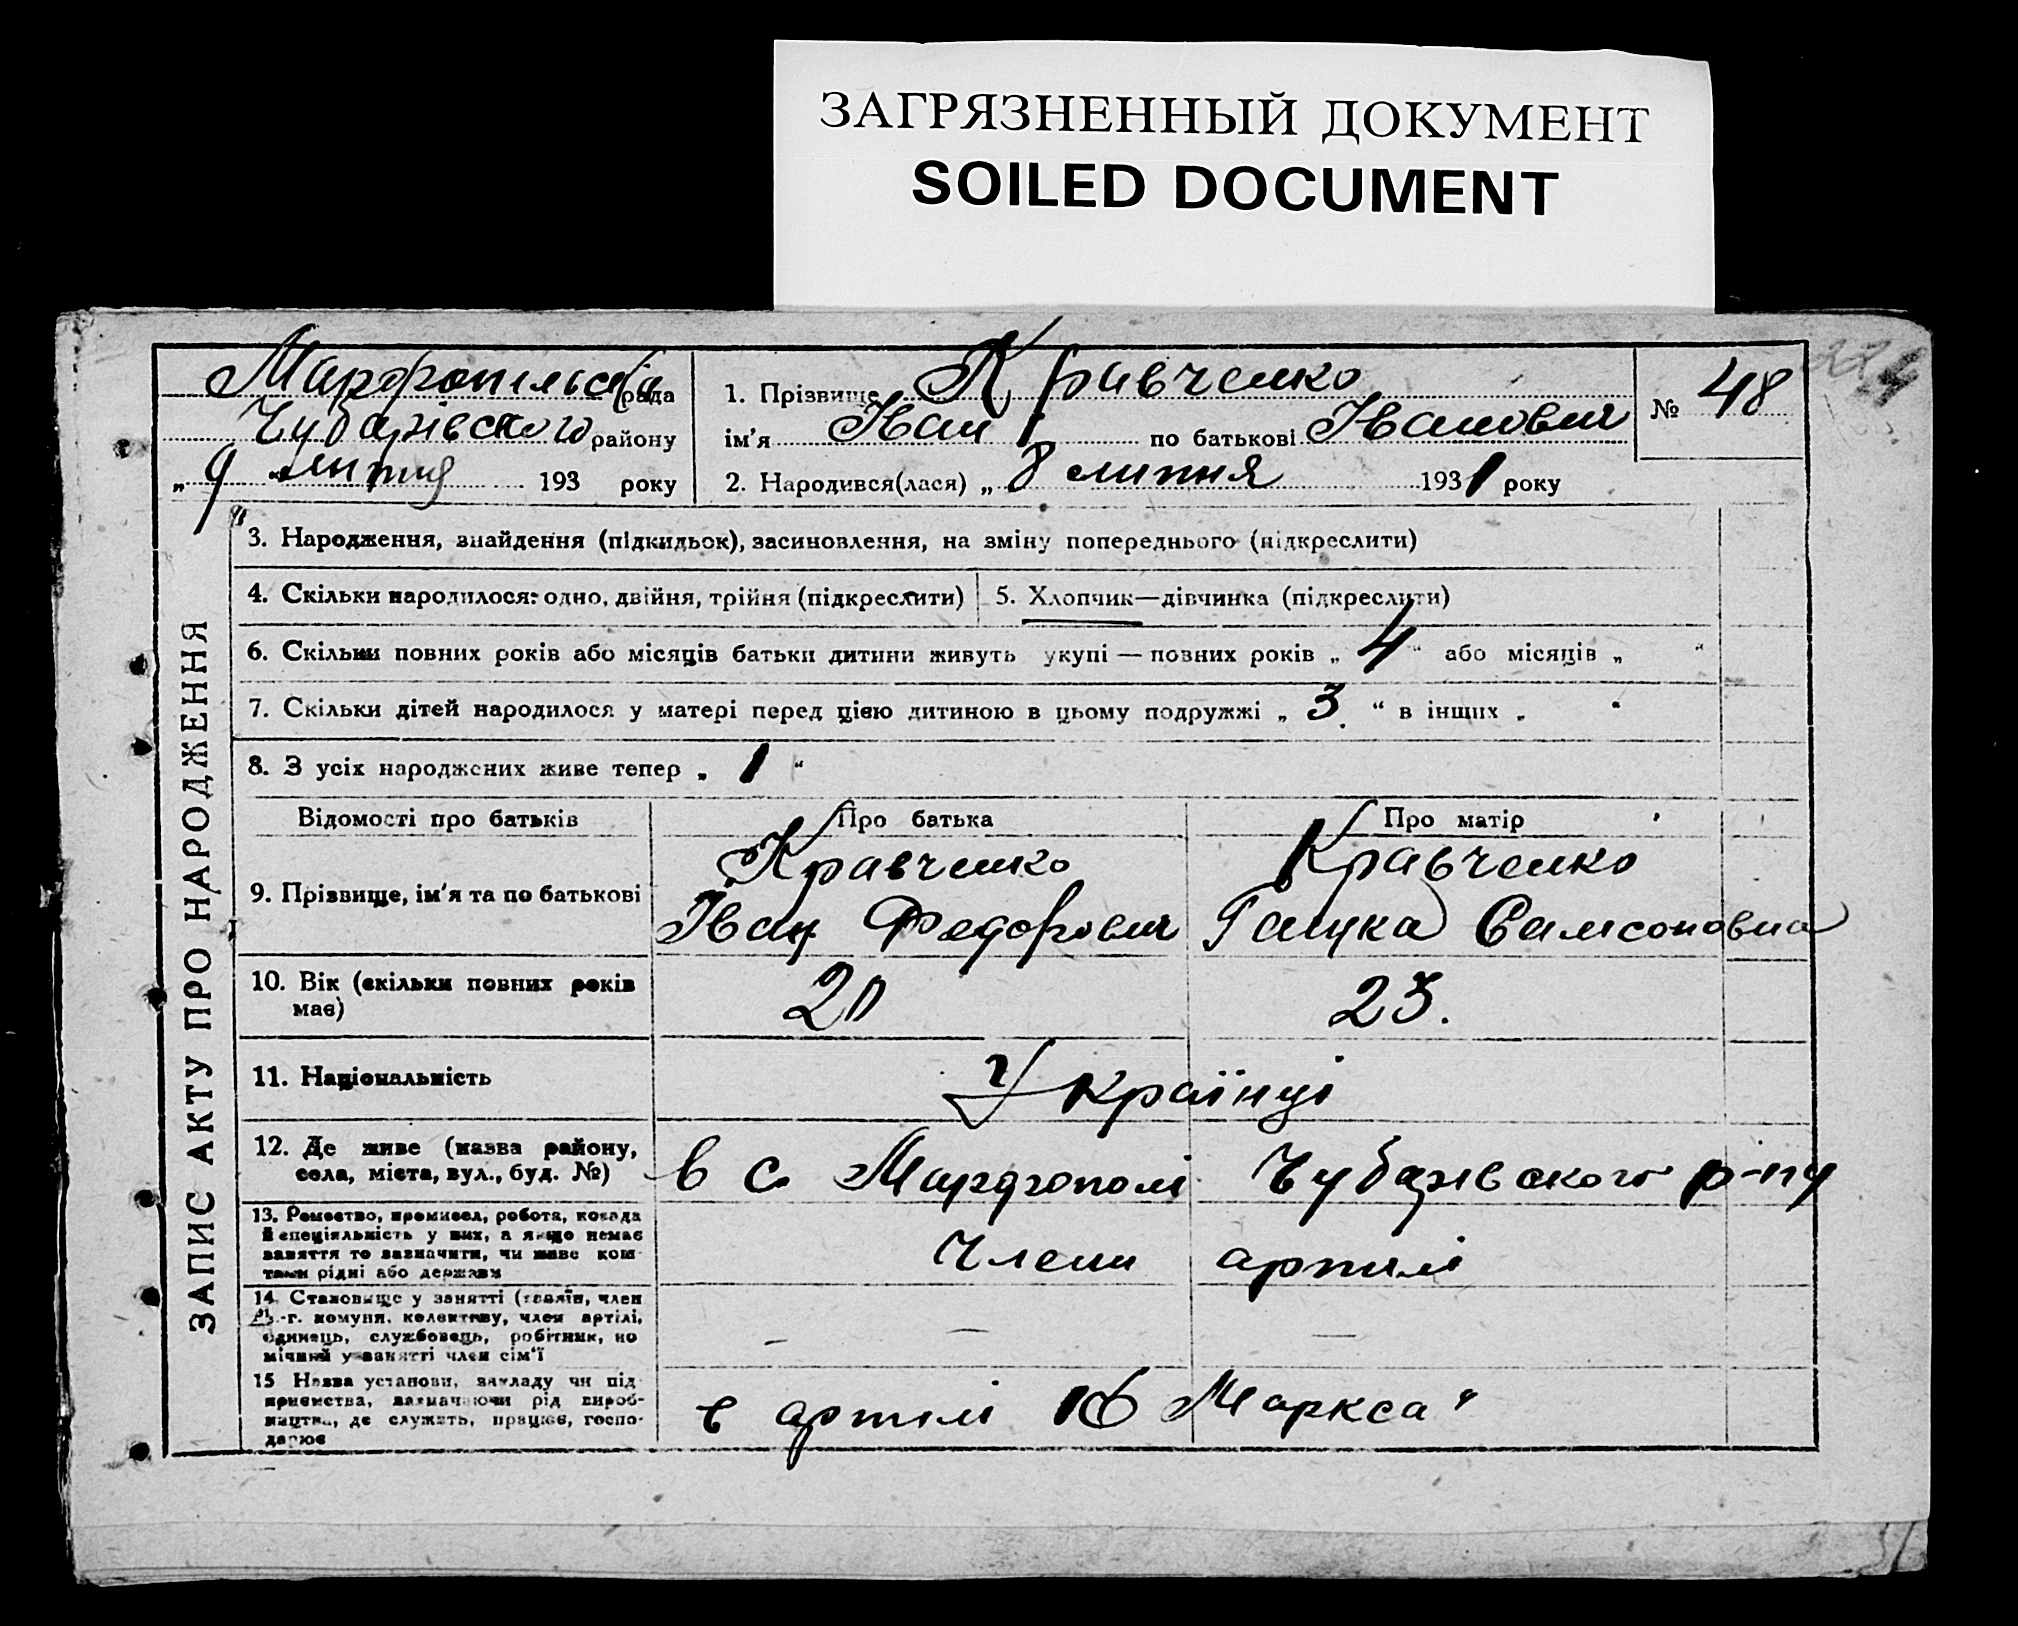 ЗАГРЯЗНЕННЫЙ ДОКУМЕНТ
SOILED DOCUMENT
Марфопільська рада
Чубарівского району
„ 9 “ липня 193 року
1. Прізвище Кравченко
ім'я Іван по батькові Іванович
2. Народився(лася) „ 8 липня 1931 року
№ 48
ЗАПИС АКТУ ПРО НАРОДЖЕННЯ
3. Народження, знайдення (підкидьок), засиновлення, на зміну попереднього (підкреслити)
4. Скільки народилося: одно, двійня, трійня (підкреслити)
5. Хлопчик—дівчинка (підкреслити)
6. Скільки повних років або місяців батьки дитини живуть укупі — повних років „ 4 “ або місяців „ “
7. Скільки дітей народилося у матері перед цією дитиною в цьому подружжі „ 3. “ в інших „ “
8. З усіх народжених живе тепер „ 1 “
Відомості про батьків
Про батька
Про матір
9. Прізвище, ім'я та по батькові
Кравченко
Іван Федорович
Кравченко
Ганука Самсоновна
10. Вік (скільки повних років
має)
20
23.
11. Національність
Українці
12. Де живе (назва району,
села, міста, вул., буд. №)
в с Марфополі Чубарівского р-ну
13. Ремество, промисел, робота, посада
й спеціяльність у них, а якщо немає
заняття то зазначити, чи живе кош-
тами рідні або держави
Члени артилі
14. Становище у занятті (хазяїн, член
с.-г. комуни, колективу, член артілі,
одинець, службовець, робітник, по
мічний у занятті член сім'ї
— — —
15 Назва установи, закладу чи під
приємства, зазначаючи рід вироб-
ництва, де служить, працює, госпо-
дарює
в артилі Маркса"